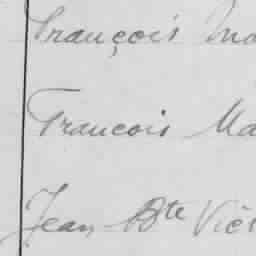 François Ma
Francois Ma
Jean Bte Vict